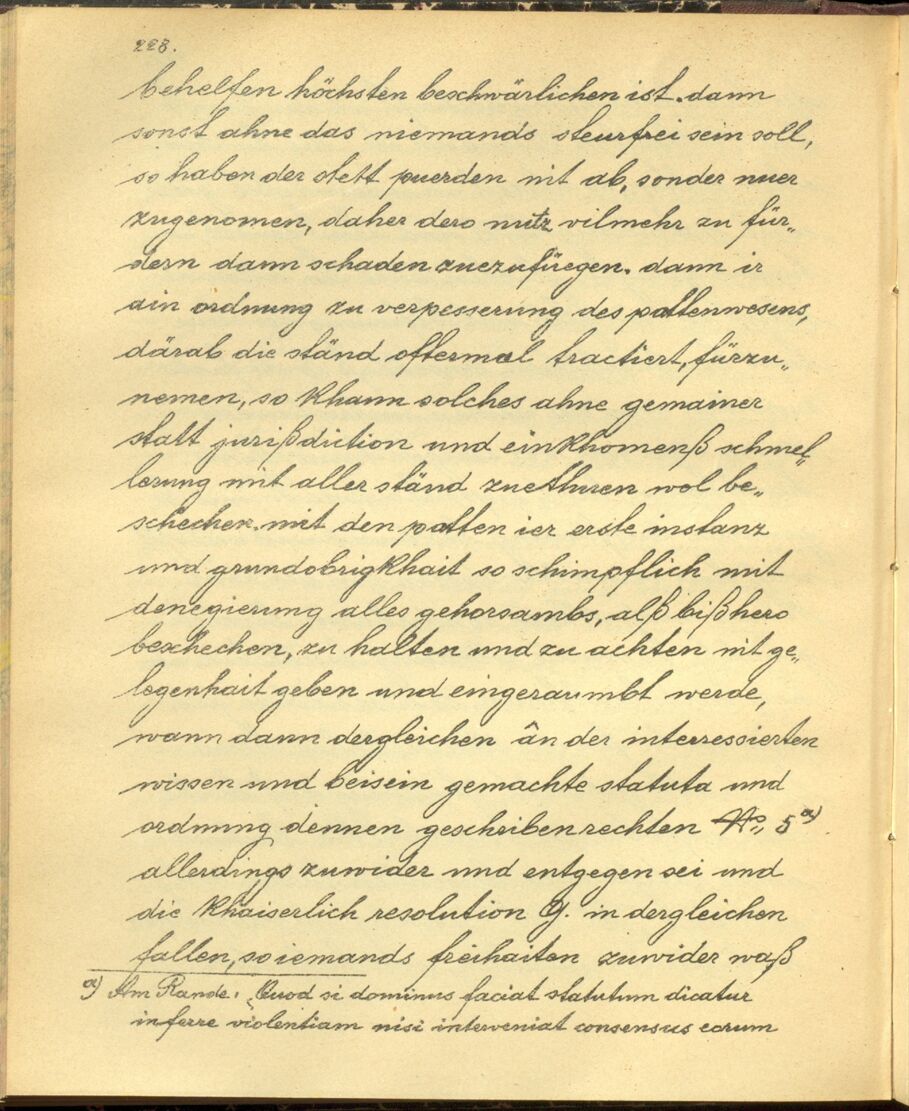 228.
behelfen höchsten beschwärlichen ist. dann
sonst ahne das niemands steurfrei sein soll,
so haben der stett puerden nit ab, sonder nuer
zugenomen, daher dero nutz vilmehr zu für„
dern dann schaden zuezufüegen. dann ir
ain ordnung zu verpesserung des pottenwesens,
därab die ständ oftermal tractiert, fürzu„
nemen, so khann solches ahne gemainer
statt jurißdiction und einkhomenß schmel„
lerung mit aller ständ zuethuen wol be„
schechen. mit den potten ier erste instanz
und grundobrigkhait so schimpflich mit
denegierung alles gehorsambs, alß bißhero
beschechen, zu halten und zu achten nit ge„
legenhait geben und eingeraumbt werde,
wann dann dergleichen ân der interressierten
wissen und beisein gemachte statuta und
ordnung dennen geschriben rechten No„ 5 a)
allerdings zuwider und entgegen sei und
die khaiserlich resolution G. in dergleichen
fallen, so iemands freihaiten zuwider waß
a) Am Rande: „Quod si dominus faciat statutum dicatur
inferre violentiam nisi interveniat consensus eorum